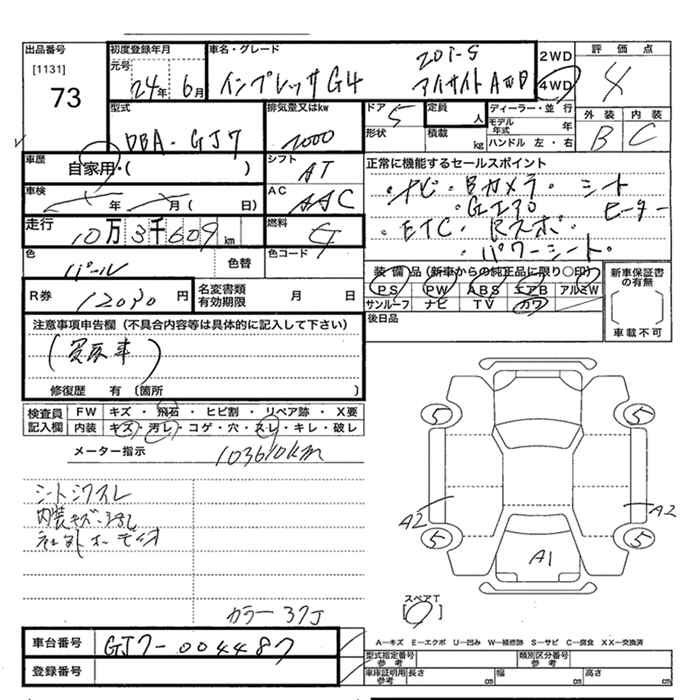 出品番号 初度登録年月 車名・グレード 評価点
[1131] 元号 2.0i-S 2WD
73 24年 6月 インプレッサG4 アイサイト 4WD 4
型式 排気量又はkw ドア 5 定員 人 ディーラー・並行 外装 内装
モデル年式 年
DBA-GJ7 2000 形状 積載 kg ハンドル 左・右 B C
車歴 自家用・( ) シフト AT 正常に機能するセールスポイント
車検 年 月( 日) AC AAC ・ナビ・Bカメラ・シートヒーター
走行 10万3千609km 燃料 G ・ETC・Rスポ・
色 パール 色替 色コード ・パワーシート・
R券 12030円 名変書類有効期限 月 日 装備品(新車からの純正品に限り○印) 新車保証書の有無
PS PW ABS エアB アルミW
サンルーフ ナビ TV カワ
注意事項申告欄(不具合内容等は具体的に記入して下さい) 後日品 車載不可
修復歴 有〔箇所 〕
検査員記入欄 FW キズ・飛石・ヒビ割・リペア跡・X要
内装 キズ・汚レ・コゲ・穴・スレ・キレ・破レ
メーター指示 103610km
シートシワスレ
内装キズ・汚レ
社外オーディオ
5 5
A2 A2
5 5
A1
スペアT
カラー37J
車台番号 GJ7-004487 A－キズ E－エクボ U－凹み W－補修跡 S－サビ C－腐食 XX－交換済
型式指定番号参考 類別区分番号参考
登録番号 車庫証明用参考 長さ cm 幅 cm 高さ cm